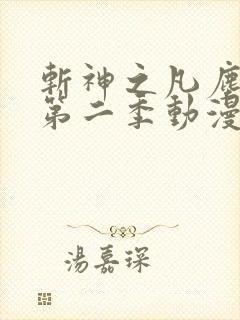 斬神之凡塵
第二季動漫
湯嘉琛